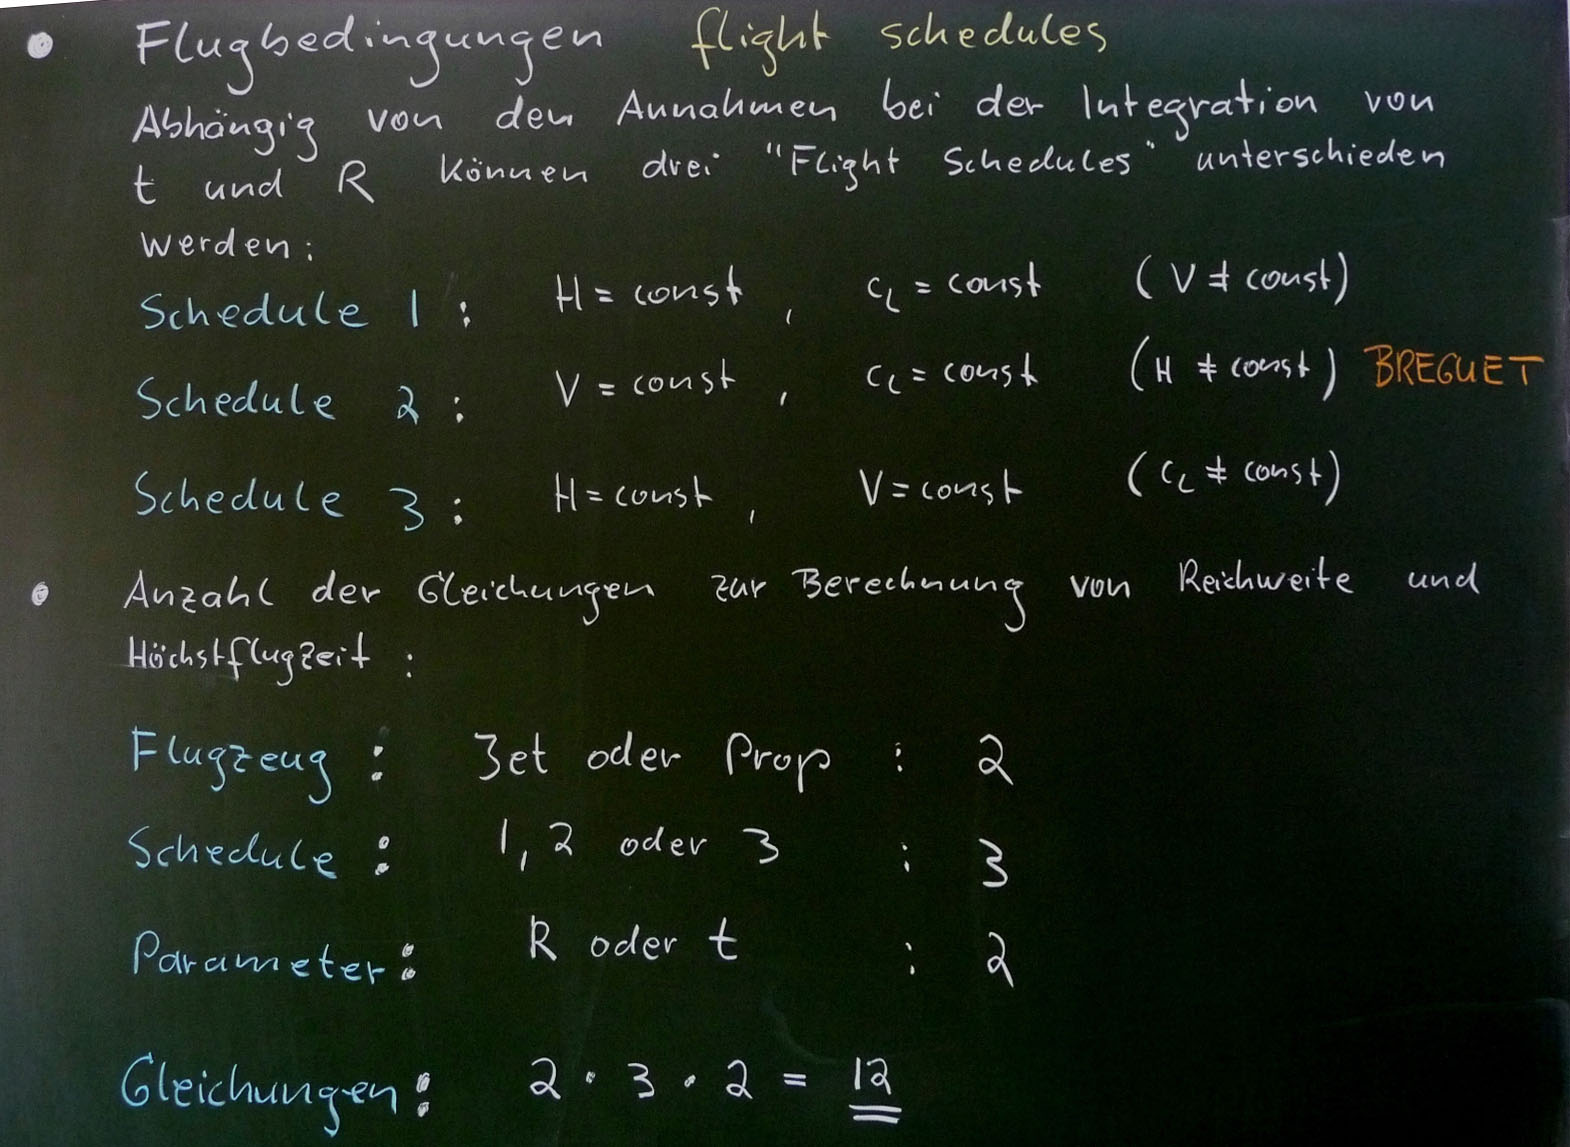 • Flugbedingungen flight schedules
Abhängig von den Annahmen bei der Integration von
t und R können drei "Flight Schedules" unterschieden
werden:
Schedule 1: H = const, c_L = const (V ≠ const)
Schedule 2: V = const, c_L = const (H ≠ const) BREGUET
Schedule 3: H = const, V = const (c_L ≠ const)
• Anzahl der Gleichungen zur Berechnung von Reichweite und
Höchstflugzeit:
Flugzeug: Jet oder Prop : 2
Schedule: 1, 2 oder 3 : 3
Parameter: R oder t : 2
Gleichungen: 2 · 3 · 2 = 12